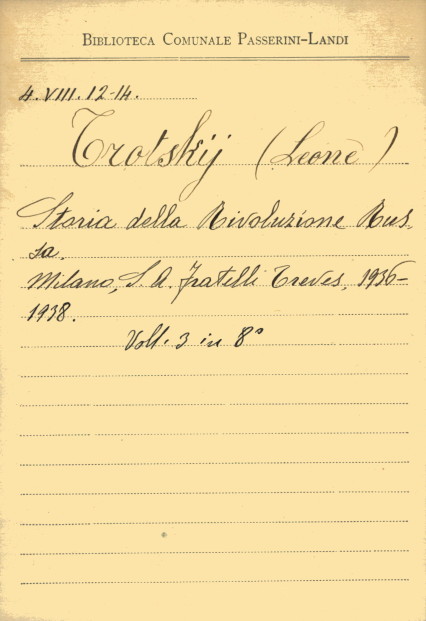 BIBLIOTECA COMUNALE PASSERINI-LANDI
4. VIII. 12-14.
Trotskij (Leone)
Storia della Rivoluzione Rus-
sa.
Milano, S. A. Fratelli Treves, 1936-
1938.
Voll. 3 in 8°